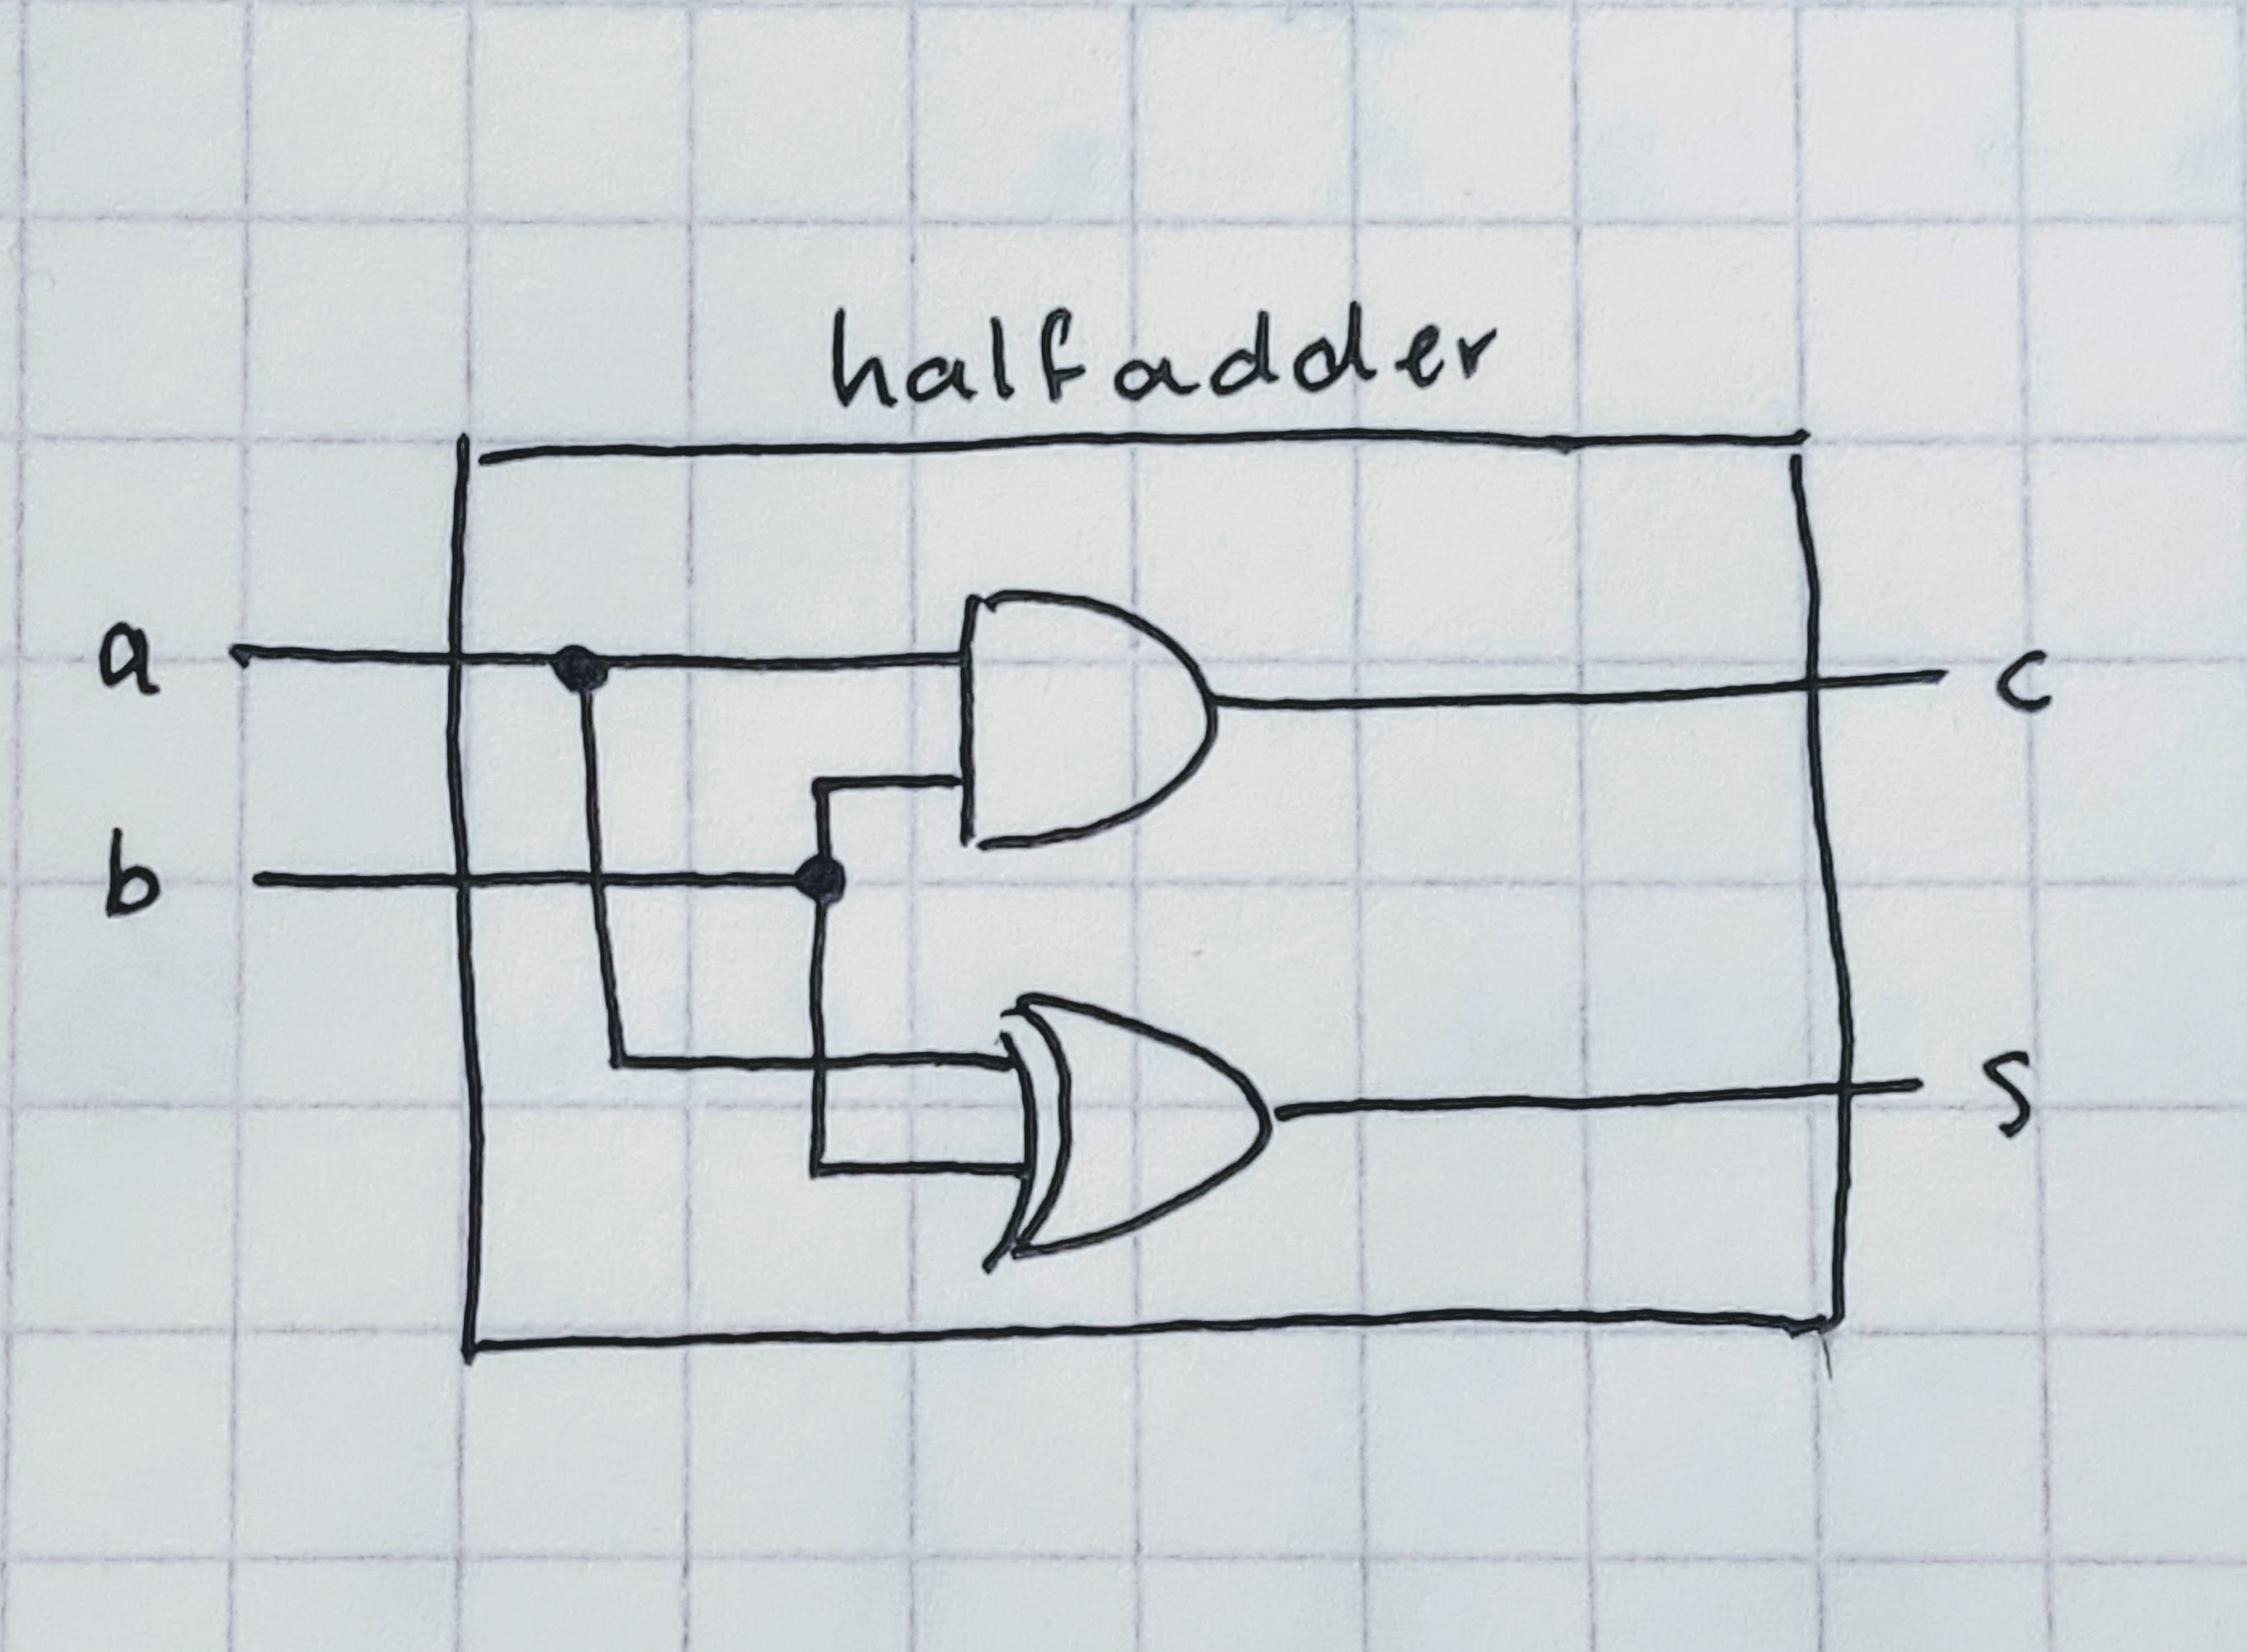 halfadder
a
c
b
s